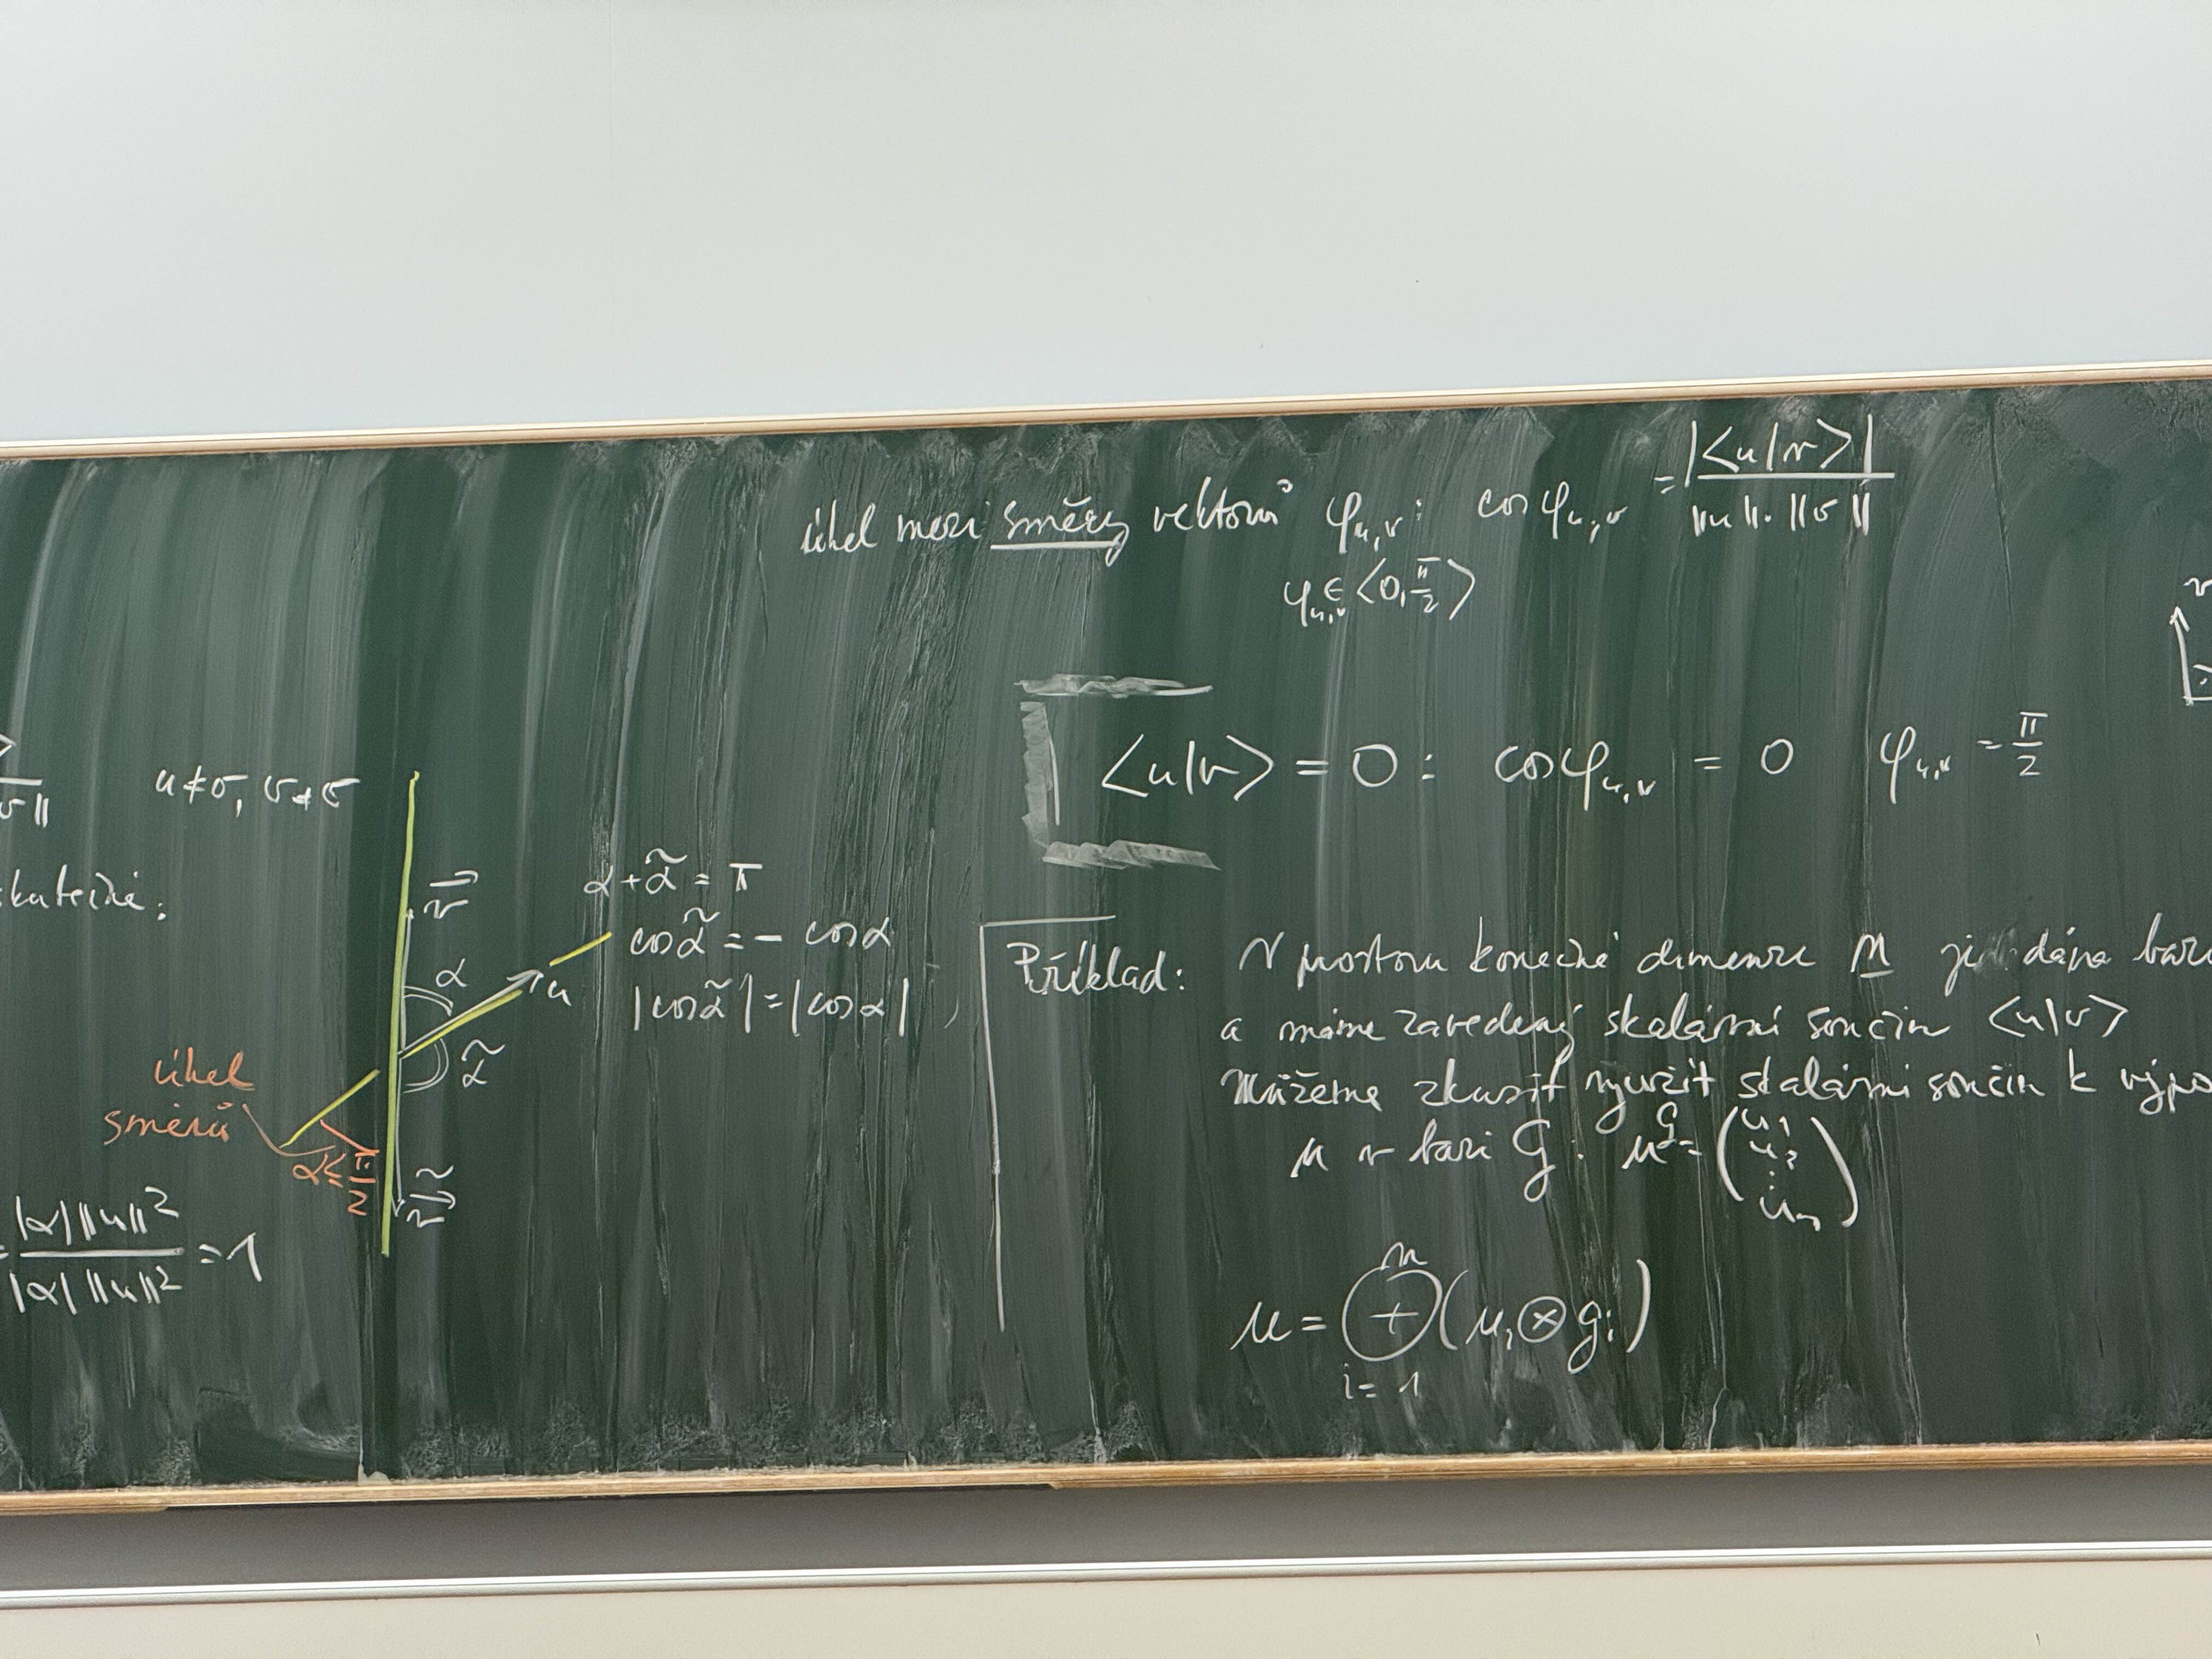 úhel mezi směry vektorů φ_{u,v}: cos φ_{u,v} = |<u|v>| / ||u||·||v||
φ_{u,v} ∈ <0, π/2>
v
<u|v> = 0 : cos φ_{u,v} = 0 φ_{u,v} = π/2
v||
u ≠ σ, v ≠ σ
v
α + α̃ = π
cos α̃ = - cos α
|cos α̃| = |cos α|
α
u
α̃
úhel
směrů
α ≤ π/2
ṽ
= |α| ||u||² / |α| ||u||² = 1
Příklad: V prostoru konečné dimenze n je dána
a máme zavedený skalární součin <u|v>
Můžeme zkusit využít skalární součin k
u v bázi G : u^G = (u₁ u₂ ⋮ uₙ)
u = ⊕_{i=1}^{n} (u_i ⊗ g_i)